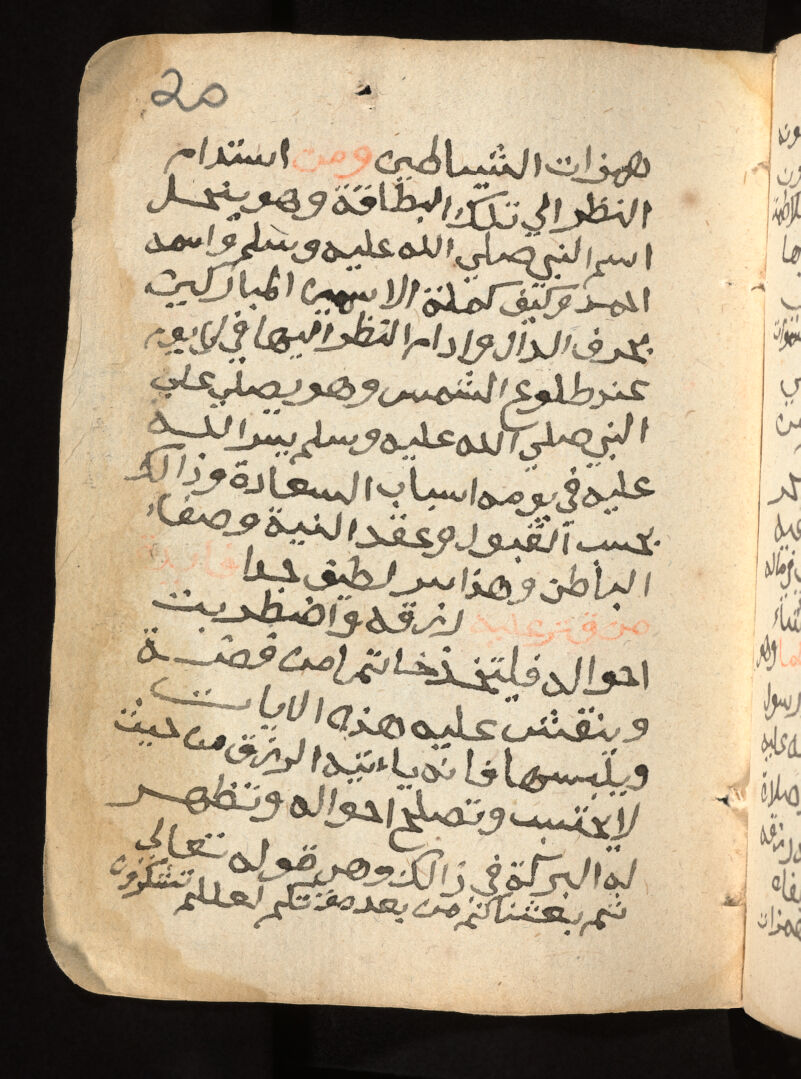 20
همزات الشياطين ومن استدام
النظر الي تلك البطاقة وهو يتخيل
اسم النبي صلي الله عليه وسلم واسمه
احمد وكيف كملة الاسمين المباركين
بحرف الدال وادام النظر اليها في كل يوم
عند طلوع الشمس وهو يصلي علي
النبي صلي الله عليه وسلم يسر الله
عليه في يومه اسباب السعادة وذالك
بحسب القبول وعقد النية وصفاء
الباطن وهذا سر لطيف جدا فايدة
من قتر عليه رزقه واضطربت
احواله فليتخذ خاتما من فضة
وينقش عليه هذه الايات
ويلبسها فانه ياءتيه الرزق من حيث
لا يحتسب وتصلح احواله وتظهر
له البركة في ذالك وهي قوله تعالي
ثم بعثناكم من بعد موتكم لعلكم تشكرون